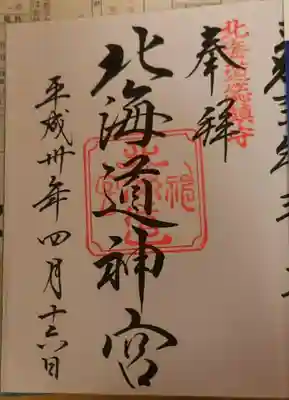 奉拝
北海道総鎮守
北海道神宮
平成卅年四月十六日